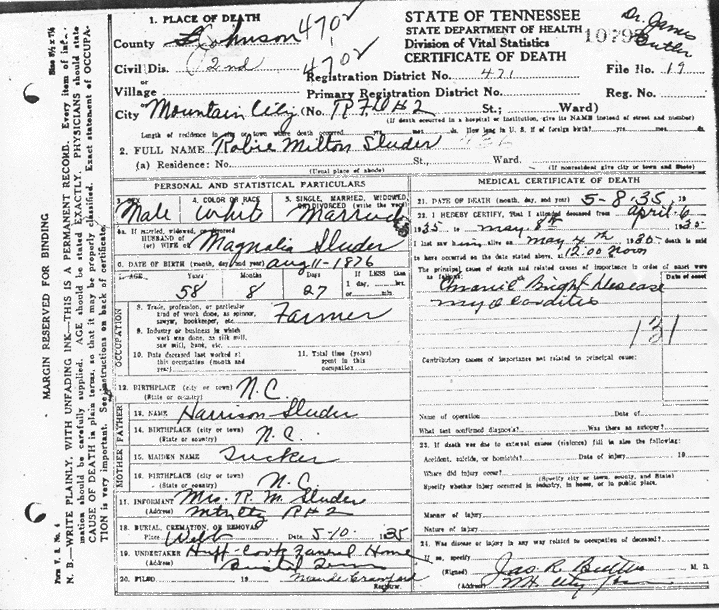 1. PLACE OF DEATH
County Johnson 4702
Civil Dis. 2nd 4702
or
Village
or
City Mountain City (No. R.F.D. #2 St.; Ward)
STATE OF TENNESSEE
STATE DEPARTMENT OF HEALTH
Division of Vital Statistics
CERTIFICATE OF DEATH
Dr. James Butler
Registration District No. 471 File No. 19
Primary Registration District No. Reg. No.
(If death occurred in a hospital or institution, give its NAME instead of street and number)
Length of residence in city or town where death occurred yrs. mos. ds. How long in U. S. if of foreign birth? yrs. mos. ds.
2. FULL NAME Robie Milton Sluder
(a) Residence: No. St., Ward.
(Usual place of abode) (If nonresident give city or town and State)
PERSONAL AND STATISTICAL PARTICULARS
3. SEX 4. COLOR OR RACE 5. SINGLE, MARRIED, WIDOWED, OR DIVORCED (write the word)
Male White Married
5a. If married, widowed, or divorced
HUSBAND of
(or) WIFE of Magnolia Sluder
6. DATE OF BIRTH (month, day, and year) Aug 11-1876
7. AGE Years Months Days If LESS than
1 day, hrs.
58 8 27 or min.
OCCUPATION
8. Trade, profession, or particular
kind of work done, as spinner,
sawyer, bookkeeper, etc. Farmer
9. Industry or business in which
work was done, as silk mill,
saw mill, bank, etc.
10. Date deceased last worked at
this occupation (month and
year)
11. Total time (years)
spent in this
occupation
12. BIRTHPLACE (city or town) N.C.
(State or country)
FATHER
13. NAME Harrison Sluder
14. BIRTHPLACE (city or town) N.C.
(State or country)
MOTHER
15. MAIDEN NAME Tucker
16. BIRTHPLACE (city or town) N.C.
(State or country)
17. INFORMANT Mrs. R. M. Sluder
(Address) Mtn City R#2
18. BURIAL, CREMATION, OR REMOVAL
Place Webb Date 5-10 1935
19. UNDERTAKER Huff-Cook Funeral Home
(Address) Bristol Tenn
20. FILED 19 Maude Crawford
Registrar.
MEDICAL CERTIFICATE OF DEATH
21. DATE OF DEATH (month, day, and year) 5-8-35, 19
22. I HEREBY CERTIFY, That I attended deceased from April 6
1935 to May 8th 1935
I last saw him alive on May 7th 1935 death is said
to have occurred on the date stated above, at 12:00 noon
The principal cause of death and related causes of importance in order of onset were
as follows: Date of onset
Chronic Bright Disease
Myocarditis
131
Contributory causes of importance not related to principal cause:
Name of operation Date of
What test confirmed diagnosis? Was there an autopsy?
23. If death was due to external causes (violence) fill in also the following:
Accident, suicide, or homicide? Date of injury 19
Where did injury occur?
(Specify city or town, county, and State)
Specify whether injury occurred in industry, in home, or in public place.
Manner of injury
Nature of injury
24. Was disease or injury in any way related to occupation of deceased?
If so, specify
(Signed) Jas. R. Butler M. D.
(Address) Mt City Tenn
MARGIN RESERVED FOR BINDING
N. B.—WRITE PLAINLY, WITH UNFADING INK—THIS IS A PERMANENT RECORD. Every item of infor-
mation should be carefully supplied. AGE should be stated EXACTLY. PHYSICIANS should state
CAUSE OF DEATH in plain terms, so that it may be properly classified. Exact statement of OCCUPA-
TION is very important. See instructions on back of certificate.